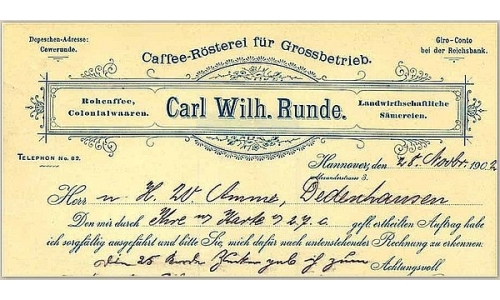 Depeschen-Adresse:
Cewerunde.
Giro-Conto
bei der Reichsbank.
Caffee-Rösterei für Grossbetrieb.
Rohcaffee,
Colonialwaaren.
Carl Wilh. Runde.
Landwirthschaftliche
Sämereien.
TELEPHON No. 82.
Hannover, den 28. Novbr. 1902
Alexanderstrasse 3.
Herr H. W. Amme, Dedenhausen
Den mir durch Ihre Karte gefl. ertheilten Auftrag habe
ich sorgfältig ausgeführt und bitte Sie, mich dafür nach untenstehender Rechnung zu erkennen.
Achtungsvoll